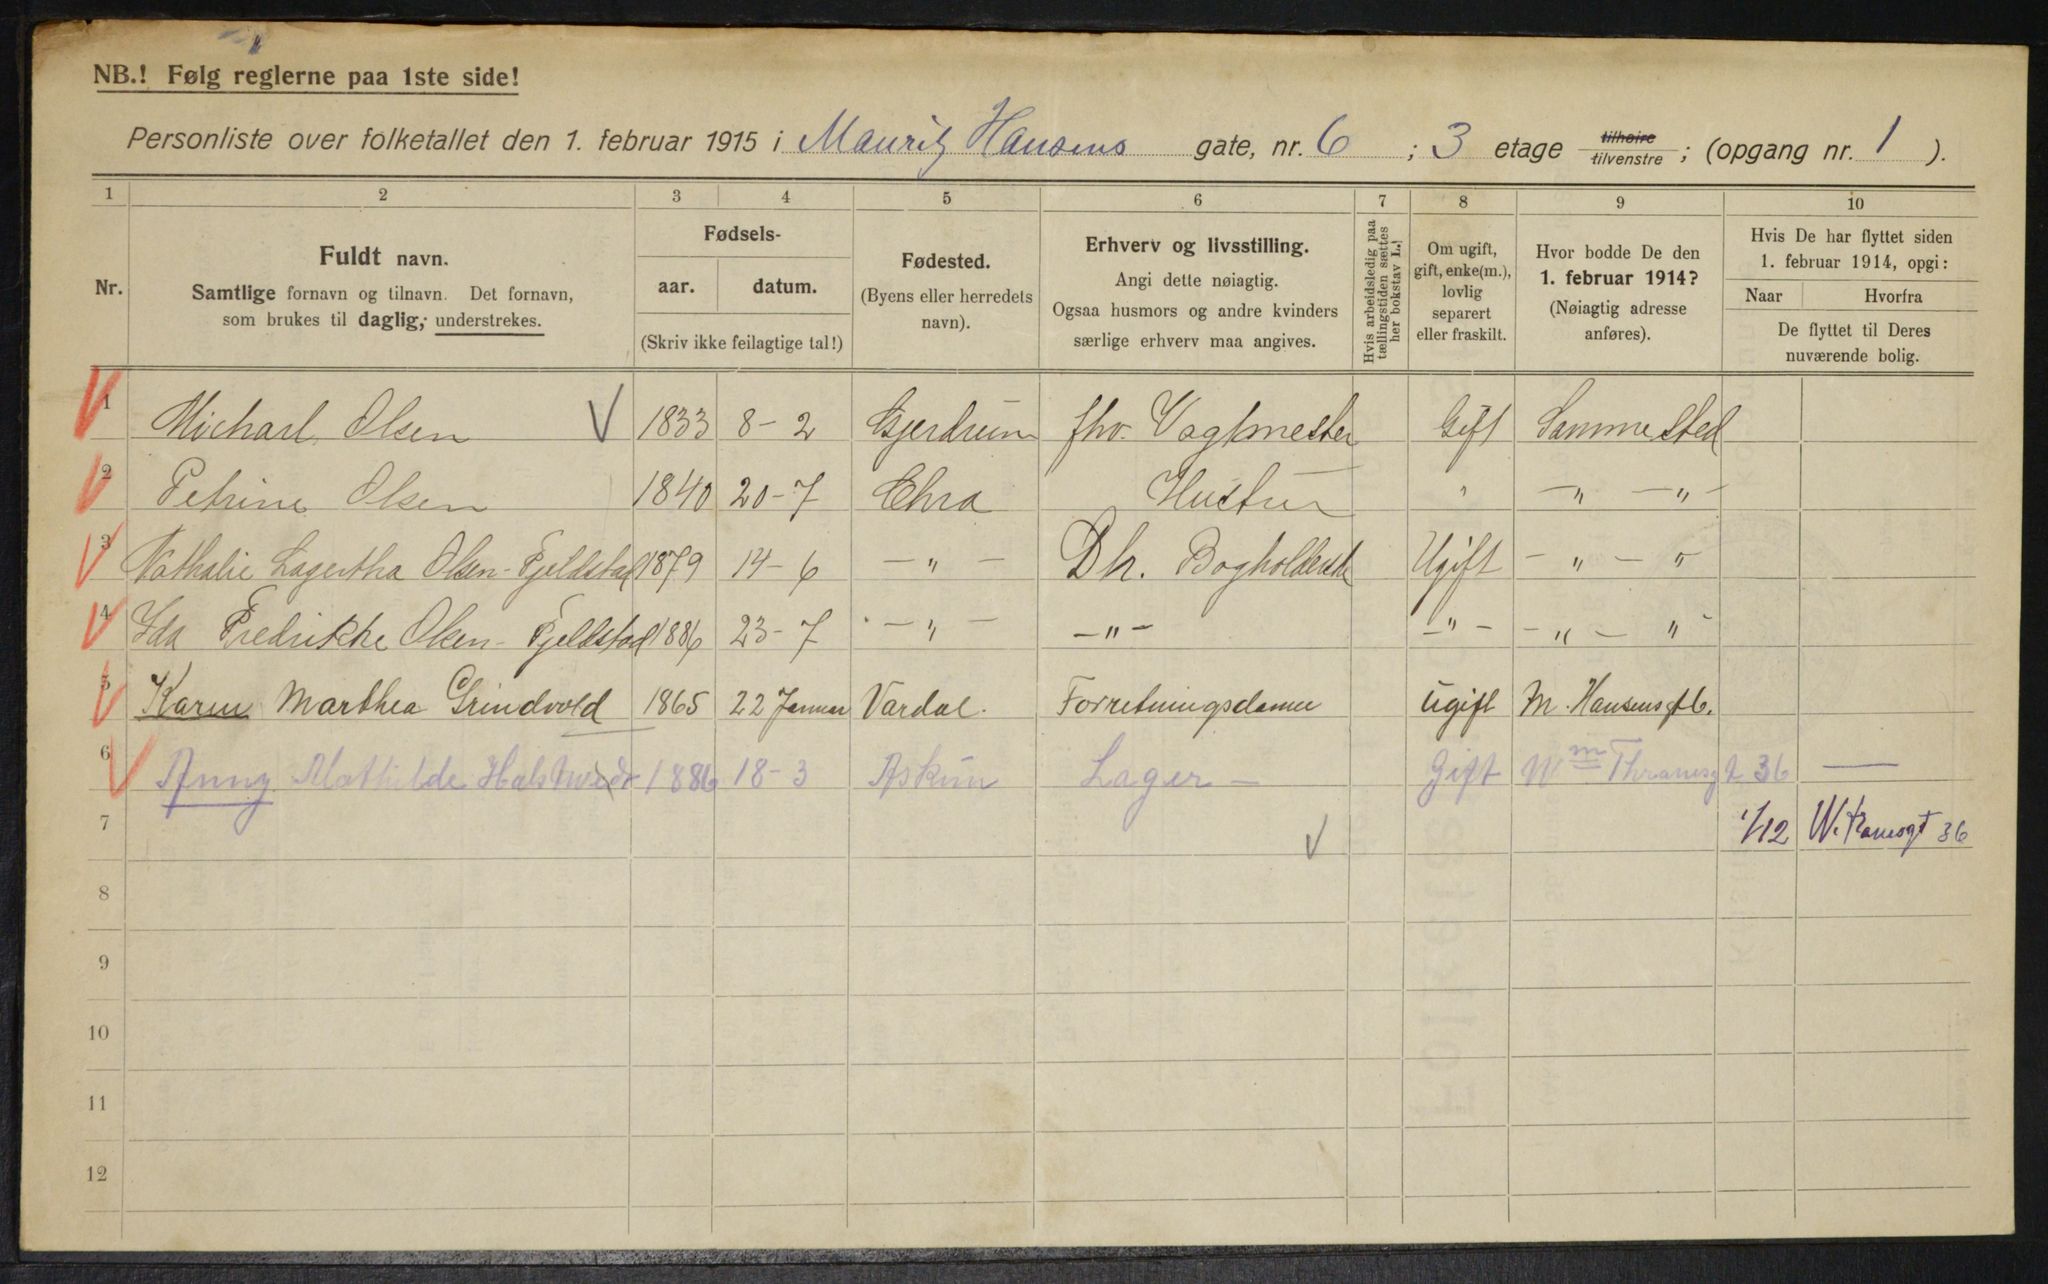 NB.! Følg reglerne paa 1ste side!
Personliste over folketallet den 1. februar 1915 i Mauritz Hansens gate, nr. 6 ; 3 etage tilhøire tilvenstre ; (opgang nr. 1 ).
1 2 3 4 5 6 7 8 9 10
Nr.
Fuldt navn.
Samtlige fornavn og tilnavn. Det fornavn,
som brukes til daglig, understrekes.
Fødsels-
aar. datum.
(Skriv ikke feilagtige tal!)
Fødested.
(Byens eller herredets
navn).
Erhverv og livsstilling.
Angi dette nøiagtig.
Ogsaa husmors og andre kvinders
særlige erhverv maa angives.
Hvis arbeidsledig paa
tællingstiden sættes
her bokstav L.
Om ugift,
gift, enke(m.),
lovlig
separert
eller fraskilt.
Hvor bodde De den
1. februar 1914?
(Nøiagtig adresse
anføres).
Hvis De har flyttet siden
1. februar 1914, opgi:
Naar Hvorfra
De flyttet til Deres
nuværende bolig.
1 Michael Olsen 1833 8-2 Gjerdrum fhv. Vagtmester Gift Samme sted
2 Petrine Olsen 1840 20-7 Chra Hustru " -"- -"-
3 Nathalie Lagertha Olsen-Fjeldstad 1879 14-6 -"- Dh. Ugift -"- "
4 Ida Fredrikke Olsen-Fjeldstad 1886 23-7 -"- -"- -"- -"- "
5 Karen Marthea Grindvold 1865 22 Januar Vardal. Forretningsdame Ugift M. Hansensgt 6.
6 Anny Mathilde 1886 18-3 Askim Lager - Gift Wm Thranesgt 36 —
7 1/12 W. Tranesgt 36
8
9
10
11
12